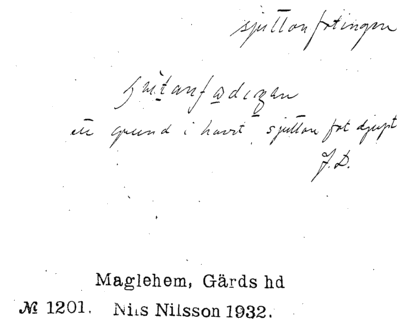 sjuttonfotingen
ett grund i havet sjutton fot djupt
J. D.
Maglehem, Gärds hd
№ 1201. Nils Nilsson 1932.